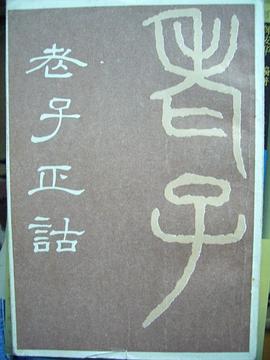 老子
老子正詁